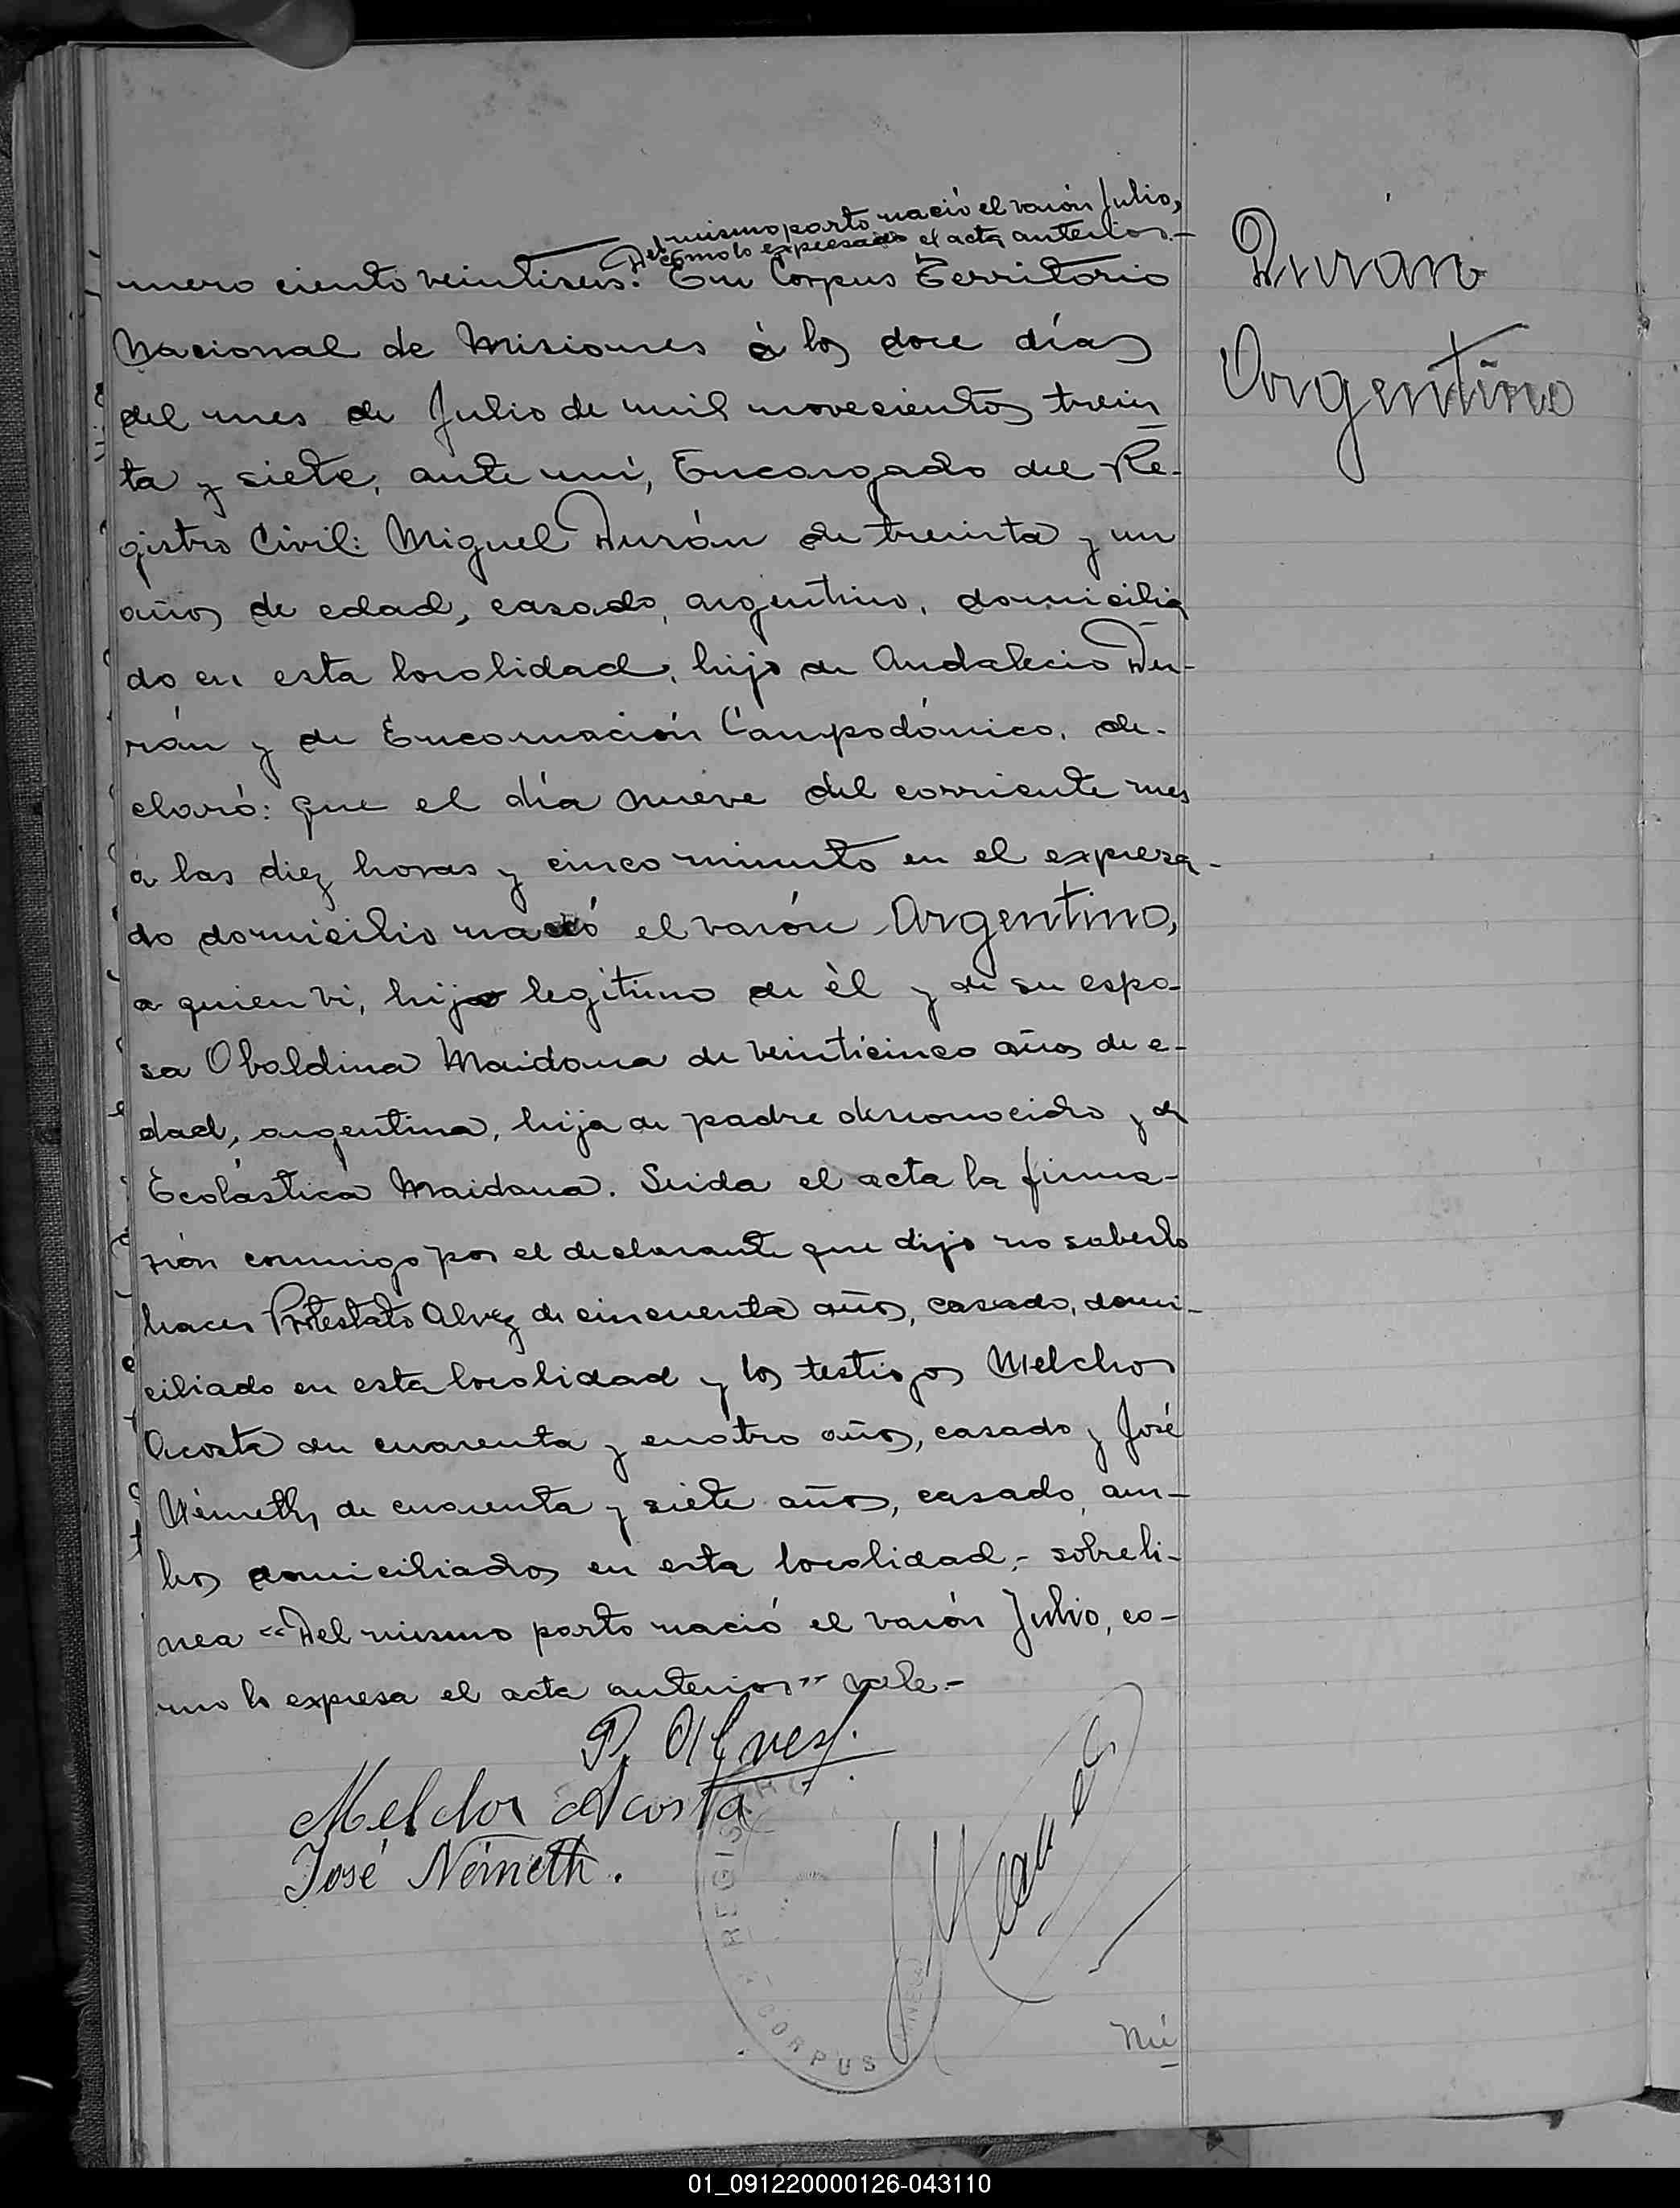 Del mismo parto nació el varón Julio,
como lo expresado el acta anterior.-
mero ciento veintiseis. En Corpus Territorio
Nacional de Misiones á los doce días
del mes de Julio de mil novecientos trein
ta y siete, ante mí, Encargado del Re-
gistro Civil: Miguel Durán de treinta y un
años de edad, casado, argentino, domicilia
do en esta localidad, hijo de Andalecio Du-
rán y de Encarnación Campodónico, de-
claró: que el día nueve del corriente mes
a las diez horas y cinco minuto en el expresa-
do domicilio nació el varón Argentino,
a quien ví, hijo legítimo de èl y de su espo-
sa Obaldina Maidana de veinticinco años de e-
dad, argentina, hija de padre desconocido y de
Ecolástica Maidana. Leida el acta la firma-
rón conmigo por el declarante que dijo no saberlo
hacer Protestato Alvez de cincuenta años, casado, domi-
ciliado en esta localidad y los testigos Melchor
Acosta de cuarenta y cuatro años, casado y José
Németh, de cuarenta y siete años, casado, am-
bos domiciliados en esta localidad,- sobreli-
nea "Del mismo parto nació el varón Julio, co-
mo lo expresa el acta anterior" vale.-
P. Alvez.
Melchor Acosta
José Németh.
REGISTRO
CORPUS
Nú
Durán
Argentino
01_091220000126-043110